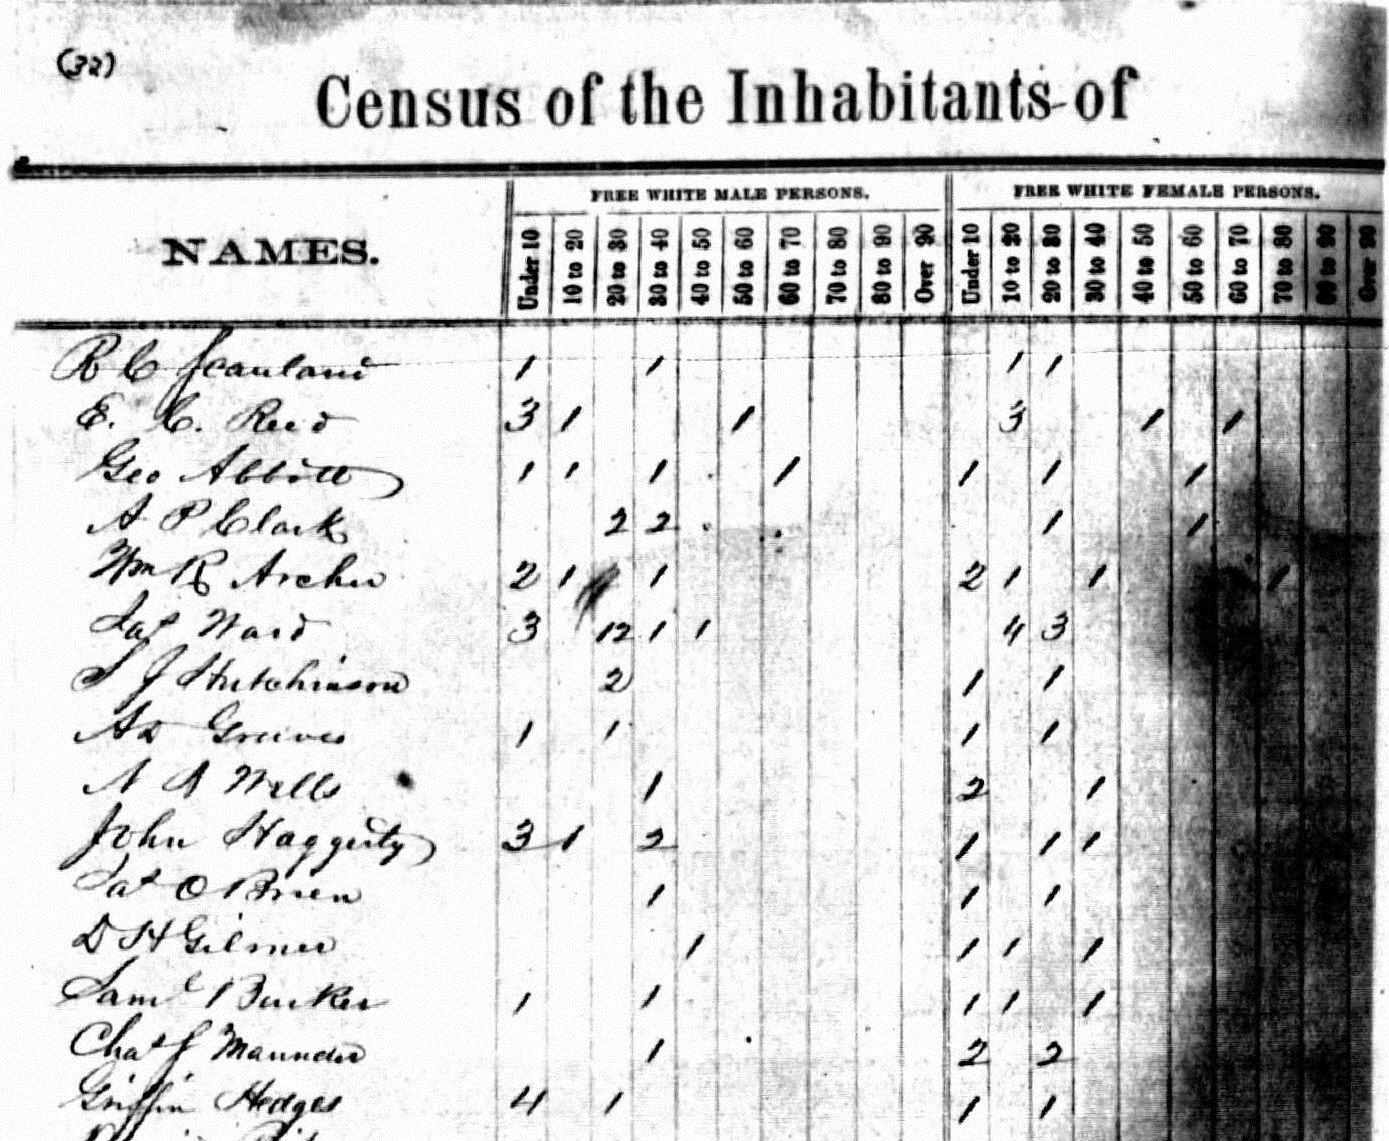 (32)
Census of the Inhabitants of
NAMES.
FREE WHITE MALE PERSONS.
FREE WHITE FEMALE PERSONS.
Under 10 10 to 20 20 to 30 30 to 40 40 to 50 50 to 60 60 to 70 70 to 80 80 to 90 Over 90 Under 10 10 to 20 20 to 30 30 to 40 40 to 50 50 to 60 60 to 70 70 to 80 80 to 90 Over 90
R C Scanland 1 1 1 1
E. C. Reed 3 1 1 3 1 1
Geo Abbott 1 1 1 1 1 1 1
A P Clark 2 2 1 1
Wm R Archer 2 1 1 2 1 1 1
Jas Ward 3 12 1 1 4 3
S J Hutchinson 2 1 1
Greeves 1 1 1 1
A Wells 1 2 1
John Haggerty 3 1 2 1 1 1
Pat O Brien 1 1 1
D H Gilmer 1 1 1 1
Saml Burker 1 1 1 1 1
Chas J Maunder 1 2 2
Griffin Hedges 4 1 1 1